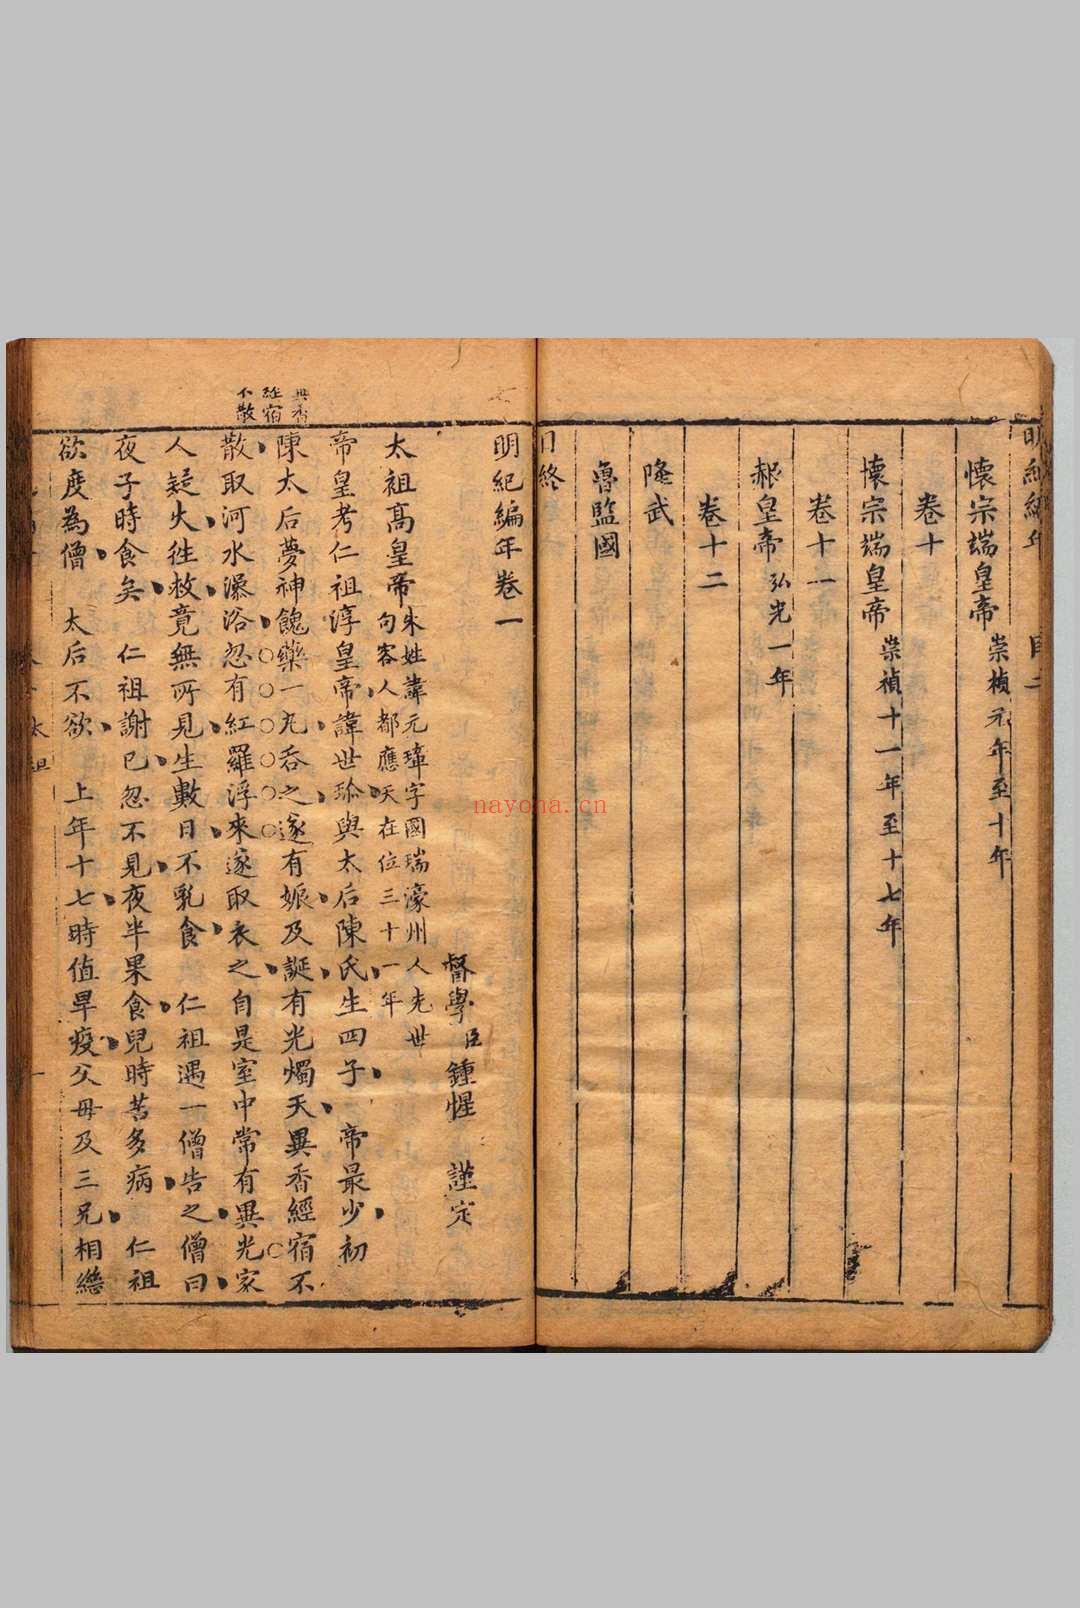 明紀編年 目二
懷宗端皇帝 崇禎元年至十年
卷十
懷宗端皇帝 崇禎十一年至十七年
卷十一
赧皇帝 弘光一年
卷十二
隆武
魯監國
目終
明紀編年卷一
督學臣鍾惺 謹定
太祖高皇帝 朱姓諱元璋字國瑞濠州人先世
句容人都應天在位三十一年
帝皇考仁祖淳皇帝諱世珍與太后陳氏生四子 帝最少初
陳太后夢神餽藥一丸吞之遂有娠及誕有光燭天異香經宿不
散取河水澡浴忽有紅羅浮來遂取衣之自是室中常有異光家
人疑火徃救竟無所見生數日不乳食 仁祖遇一僧告之僧曰
夜子時食矣 仁祖謝已忽不見夜半果食兒時苦多病 仁祖
欲度為僧 太后不欲 上年十七時值旱疫父母及三兄相繼
異香
經宿
不散
太祖
nayona.cn